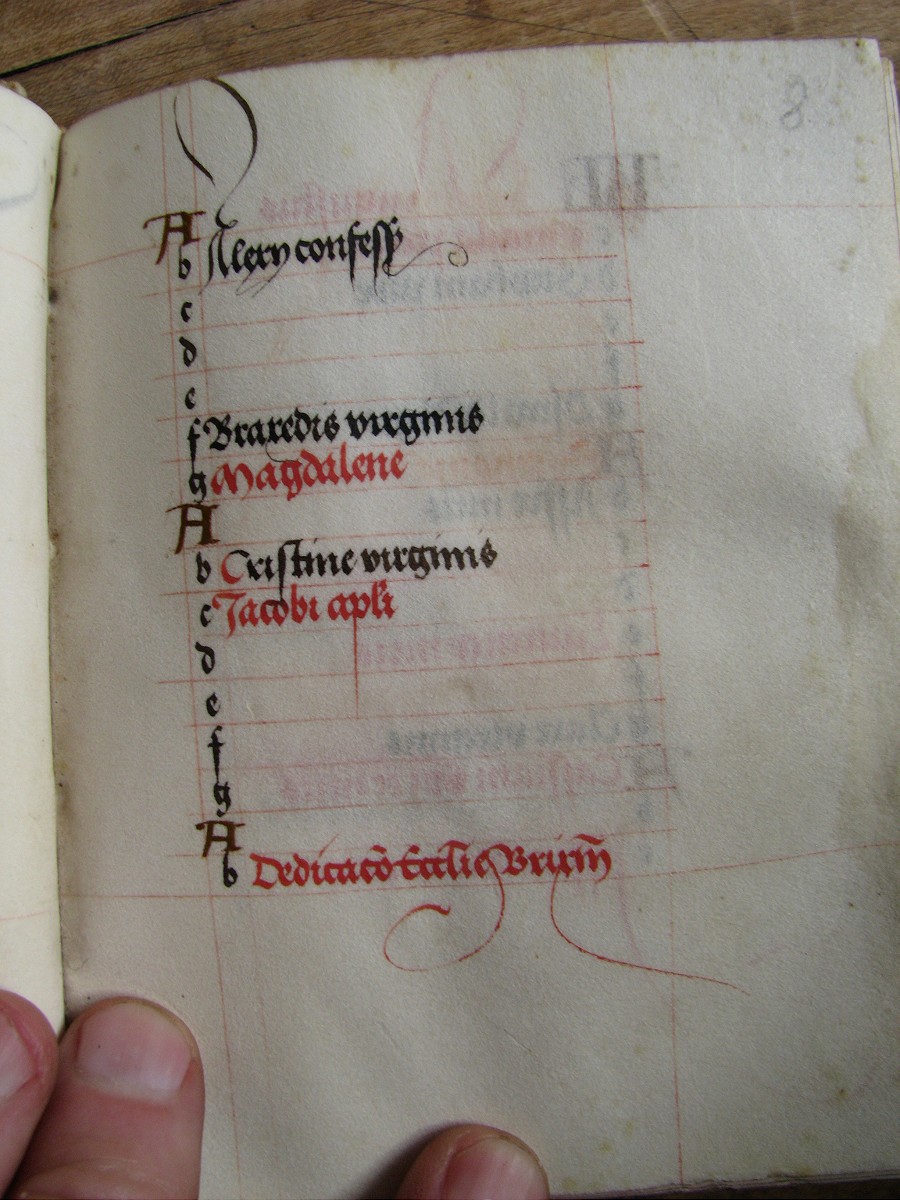 8
A
b Alexy confess
c
d
e
f Braxedis virginis
g Magdalene
A
b Cristine virginis
c Jacobi apli
d
e
f
g
A
b Dedicaco Eccli